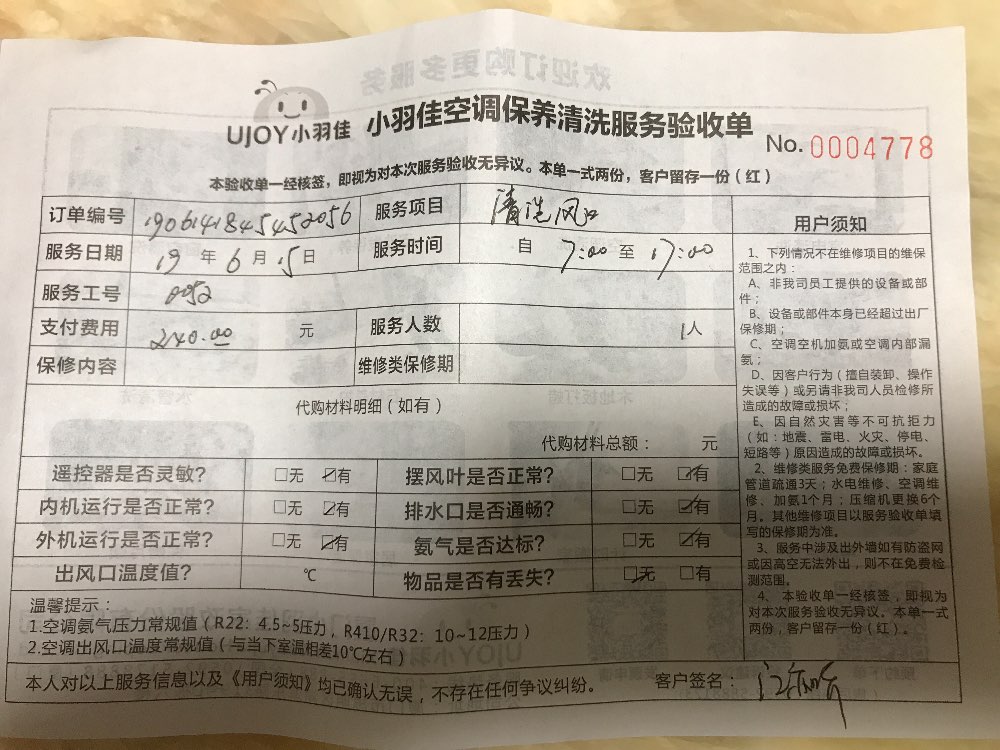 UJOY小羽佳 小羽佳空调保养清洗服务验收单
No. 0004778
本验收单一经核签，即视为对本次服务验收无异议。本单一式两份，客户留存一份（红）
订单编号 190614184545205​6 服务项目 清洗风口
服务日期 19 年 6 月 15 日 服务时间 自 7:00 至 17:00
服务工号 0052
支付费用 240.00 元 服务人数 1人
保修内容 维修类保修期
代购材料明细（如有）
代购材料总额： 元
遥控器是否灵敏? □无 ☑有 摆风叶是否正常? □无 ☑有
内机运行是否正常? □无 ☑有 排水口是否通畅? □无 ☑有
外机运行是否正常? □无 ☑有 氨气是否达标? □无 ☑有
出风口温度值? ℃ 物品是否有丢失? ☑无 □有
温馨提示：
1.空调氨气压力常规值（R22：4.5~5压力，R410/R32：10~12压力）
2.空调出风口温度常规值（与当下室温相差10℃左右）
本人对以上服务信息以及《用户须知》均已确认无误，不存在任何争议纠纷。 客户签名：
用户须知
1、下列情况不在维修项目的维保
范围之内：
A、非我司员工提供的设备或部
件；
B、设备或部件本身已经超过出厂
保修期；
C、空调空机加氨或空调内部漏
氨；
D、因客户行为（擅自装卸、操作
失误等）或另请非我司人员检修所
造成的故障或损坏；
E、因自然灾害等不可抗拒力
（如：地震、雷电、火灾、停电、
短路等）原因造成的故障或损坏。
2、维修类服务免费保修期：家庭
管道疏通3天；水电维修、空调维
修、加氨1个月；压缩机更换6个
月。其他维修项目以服务验收单填
写的保修期为准。
3、服务中涉及出外墙如有防盗网
或因高空无法外出，则不在免费检
测范围。
4、本验收单一经核签，即视为
对本次服务验收无异议。本单一式
两份，客户留存一份（红）。